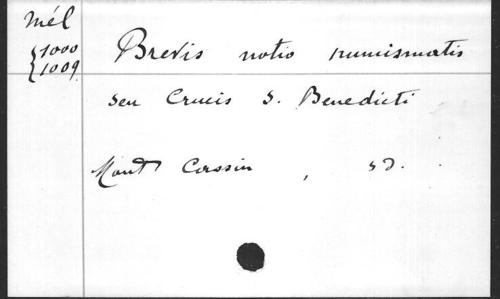 Mél
{1000
{1009
Brevis notio numismatis
seu Crucis S. Benedicti
Mont Cassin , s d.